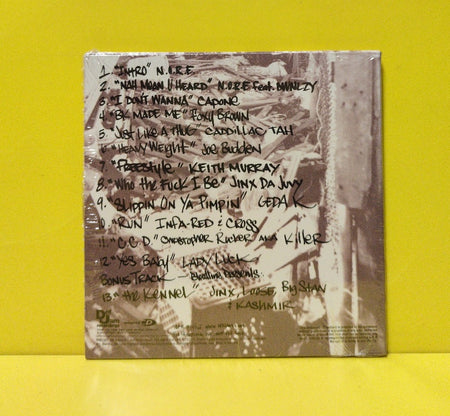 1. "INTRO" N.O.R.E.
2. "NAH MEAN U HEARD" N.O.R.E feat. MUNZY
3. "I DON'T WANNA" CAPONE
4. "BK MADE ME" FOXY BROWN
5. JUST LIKE A THUG CADDILLAC TAH
6. "HEAVY WEIGHT" Joe Budden
7. "FREESTYLE" KEITH MURRAY
8. "WHO the FUCK I BE" JINX DA JUVY
9. "SLIPPIN ON YA PIMPIN" GEDA K
10. "RUN" INFA-RED & CROSS
11. "C.C.D." CHRISTOPHER RUCKER AKA KILLER
12. "YES BABY" LADY LUCK
BONUS TRACK -
13. "the KENNEL" JINX, LOOSE, BIG STAN
& KASHMIR
Def Jam